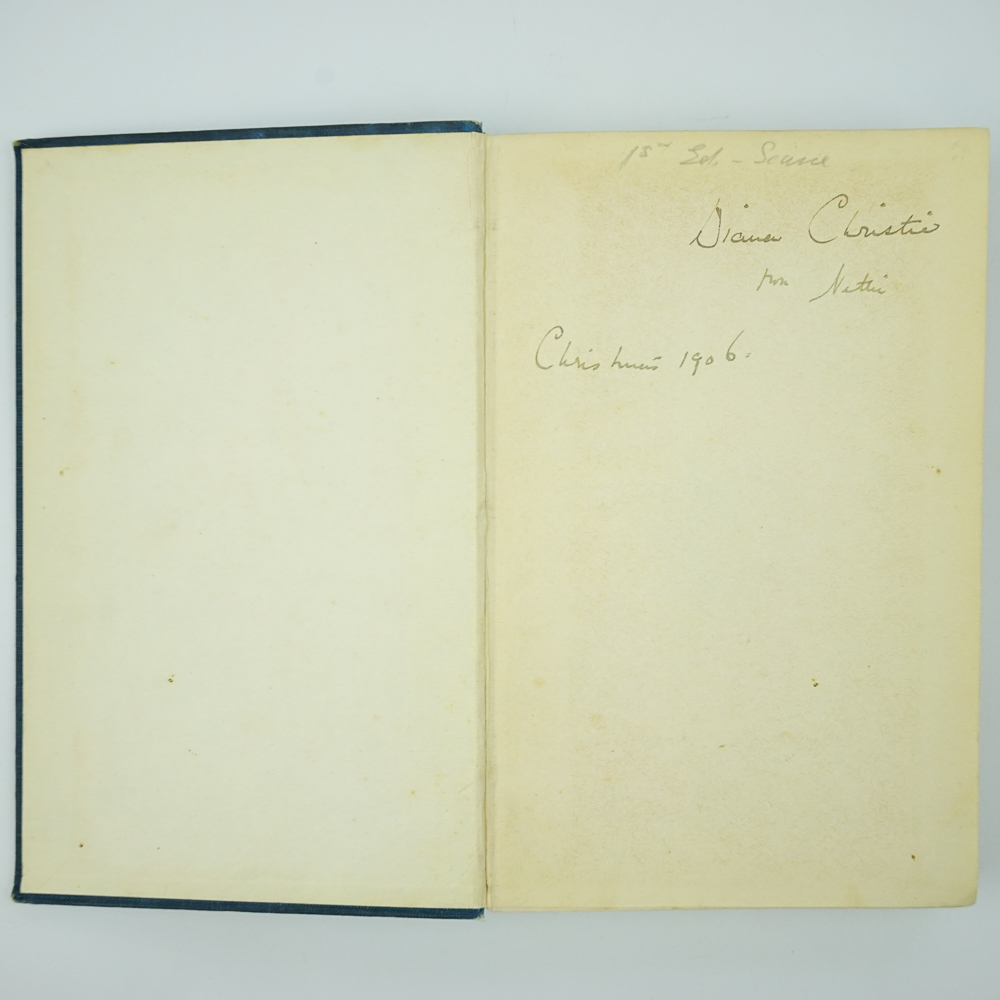 1st Ed. - Scarce
Diana Christie
from Nettie
Christmas 1906.